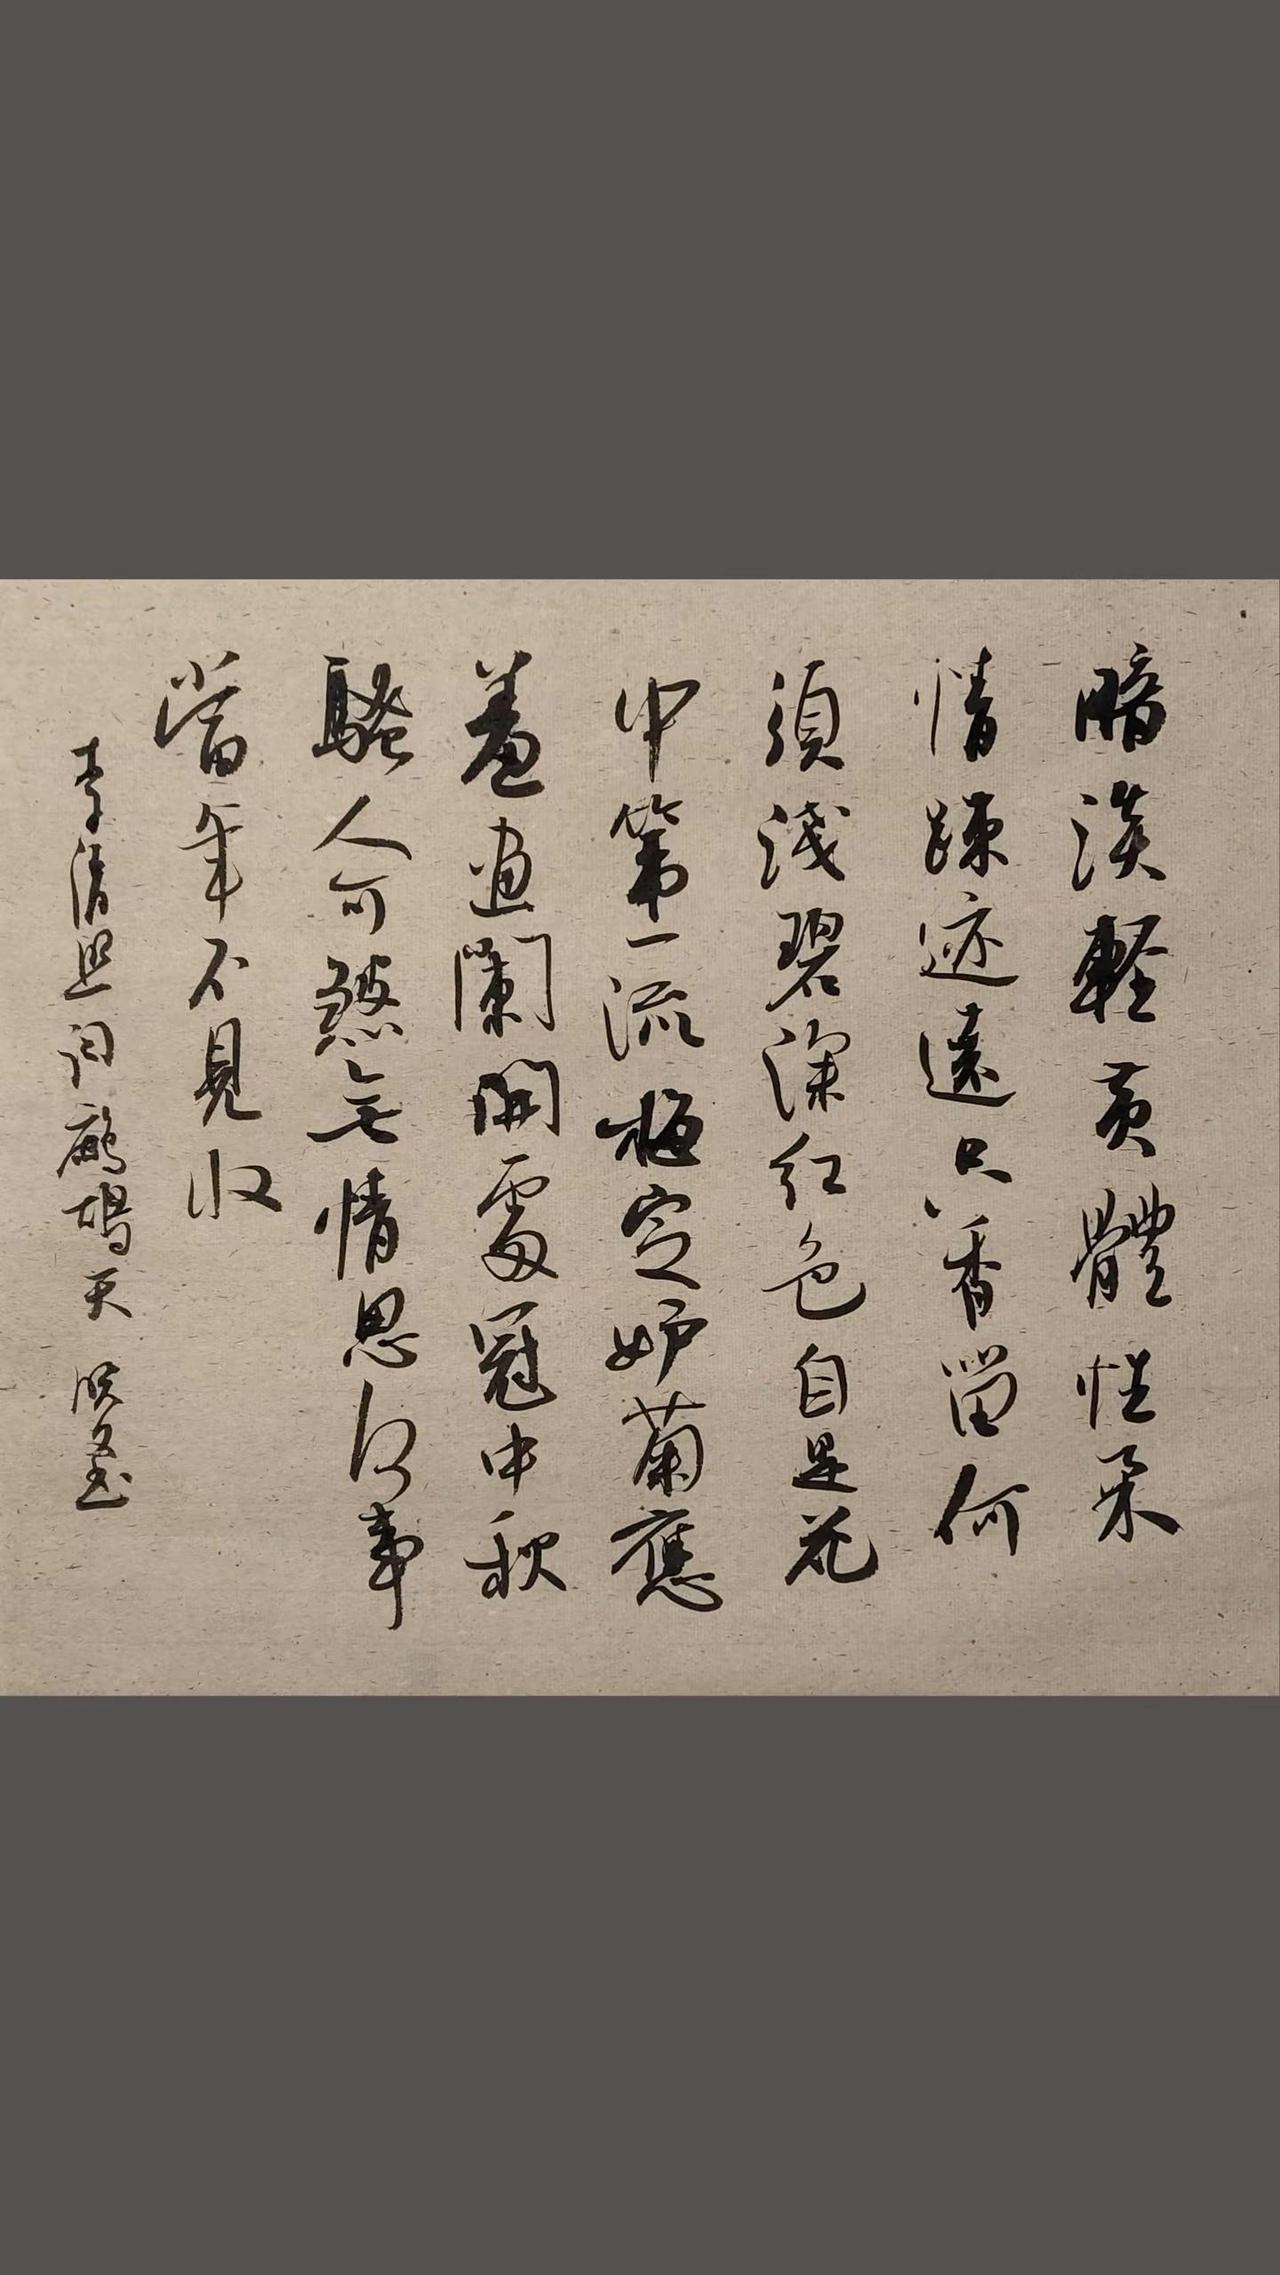 暗淡輕黃體性柔
情疎迹遠只香留何
須淺碧深紅色自是花
中第一流梅定妒菊應
羞畫闌開處冠中秋
騷人可煞無情思何事
當年不見收
李清照詞鷓鴣天